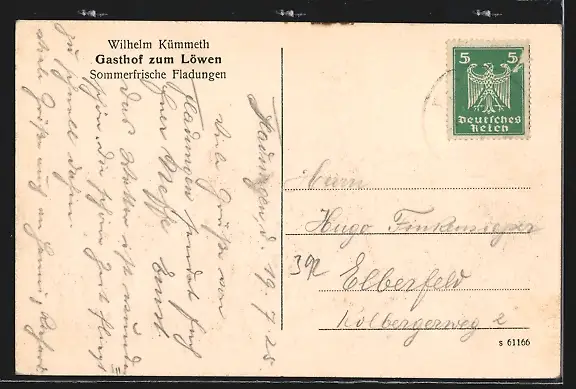 Wilhelm Kümmeth
Gasthof zum Löwen
Sommerfrische Fladungen
Fladungen, d. 19.7.25.
Viele Grüße von
Fladungen sendet Euch
Euer Neffe Ernst
Das Wetter ist
schön die schöne Zeit fliegt
zu schnell dahin.
viele Grüße auch an
5 5
Deutsches
Reich
Herrn
Hugo
392
Elberfeld
Kolbergerweg 2
s 61166